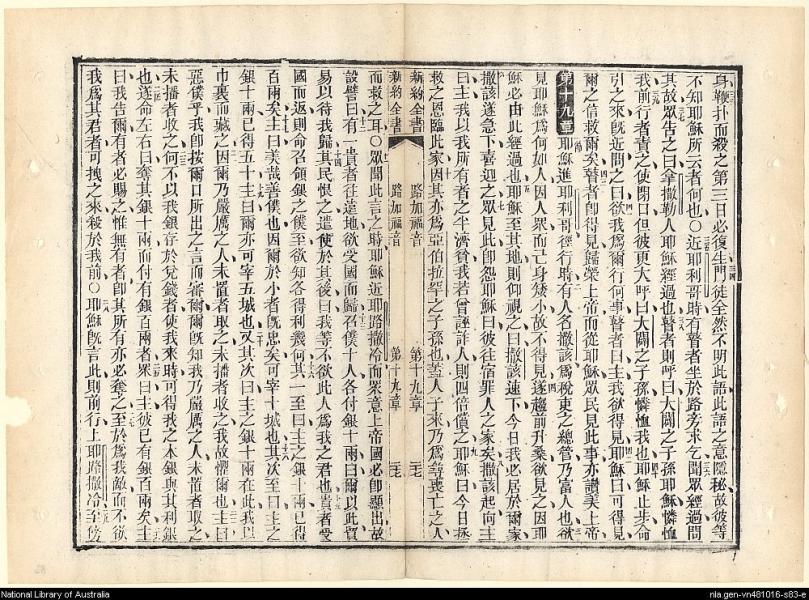 身鞭扑而殺之第三日必復生門徒全然不明此語此語之意隱秘故彼等
不知耶穌所云者何也〇近耶利哥時有瞽者坐於路旁求乞聞眾經過問
其故眾告之曰拿撒勒人耶穌經過也瞽者則呼曰大闢之子耶穌憐恤
我前行者責之使閉口但彼更大呼曰大闢之子孫憐恤我也耶穌止步令
引之來既近問之曰欲我為爾行何事瞽者曰主我欲得見耶穌曰可得見
爾之信救爾矣瞽者卽得見歸榮上帝而從耶穌眾民見此事亦讚美上帝
第十九章 耶穌進耶利哥徑行時有人名撒該為稅吏之總管乃富人也欲
見耶穌為何如人因人眾而己身矮小故不得見遂趨前升桑欲見之因耶
穌必由此經過也耶穌至其地則仰視之曰撒該速下今日我必居於爾家
撒該遂急下喜迎之眾見此卽怨耶穌曰彼往宿罪人之家矣撒該起向主
曰主我以我所有者之半濟貧我若曾誣詐人則四倍償之耶穌曰今日拯
救之恩臨此家因其亦為亞伯拉罕之子孫也蓋人子來乃為尋喪亡之人
新約全書 路加福音 第十九章 三七
新約全書 路加福音 第十九章 三七
而救之耳〇眾聞此言之時耶穌近耶路撒冷而眾意上帝國必卽顯出故
設譬曰有一貴者往遠地欲受國而歸召僕十人各付銀十兩曰爾以此貿
易以待我歸其民恨之遣使於其後曰我等不欲此人為我之君也貴者受
國而返則命召領銀之僕至欲知各得利幾何其一至曰主之銀十兩已得
百兩矣主曰美哉善僕也因爾於小者既忠矣可宰十城也其次至曰主之
銀十兩已得五十主曰爾亦可宰五城也又其次曰主之銀十兩在此我以
巾裹而藏之因爾乃嚴厲之人未置者取之未播者收之我故懼爾也主曰
惡僕乎我卽按爾口所出之言而審爾爾既知我乃嚴厲之人未置者取之
未播者收之何不以我銀存於兌錢者使我來時可得我之本銀與其利銀
也遂命左右曰奪其銀十兩而付有銀百兩者眾曰主彼已有銀百兩矣主
曰我告爾有者必賜之惟無有者卽其所有亦必奪之至於為我敵而不欲
我為其君者可拽之來殺於我前〇耶穌既言此則前行上耶路撒冷至傍
National Library of Australia
nla.gen-vn481016-s83-e